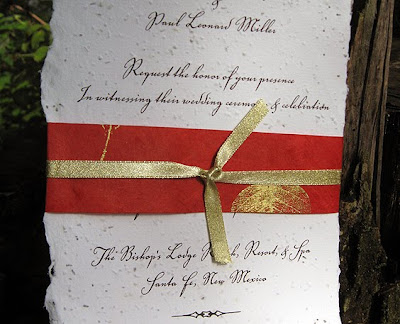 &
Paul Leonard Miller
Request the honor of your presence
In witnessing their wedding ceremony & celebration
The Bishop's Lodge Resort, & Spa
Santa Fe, New Mexico